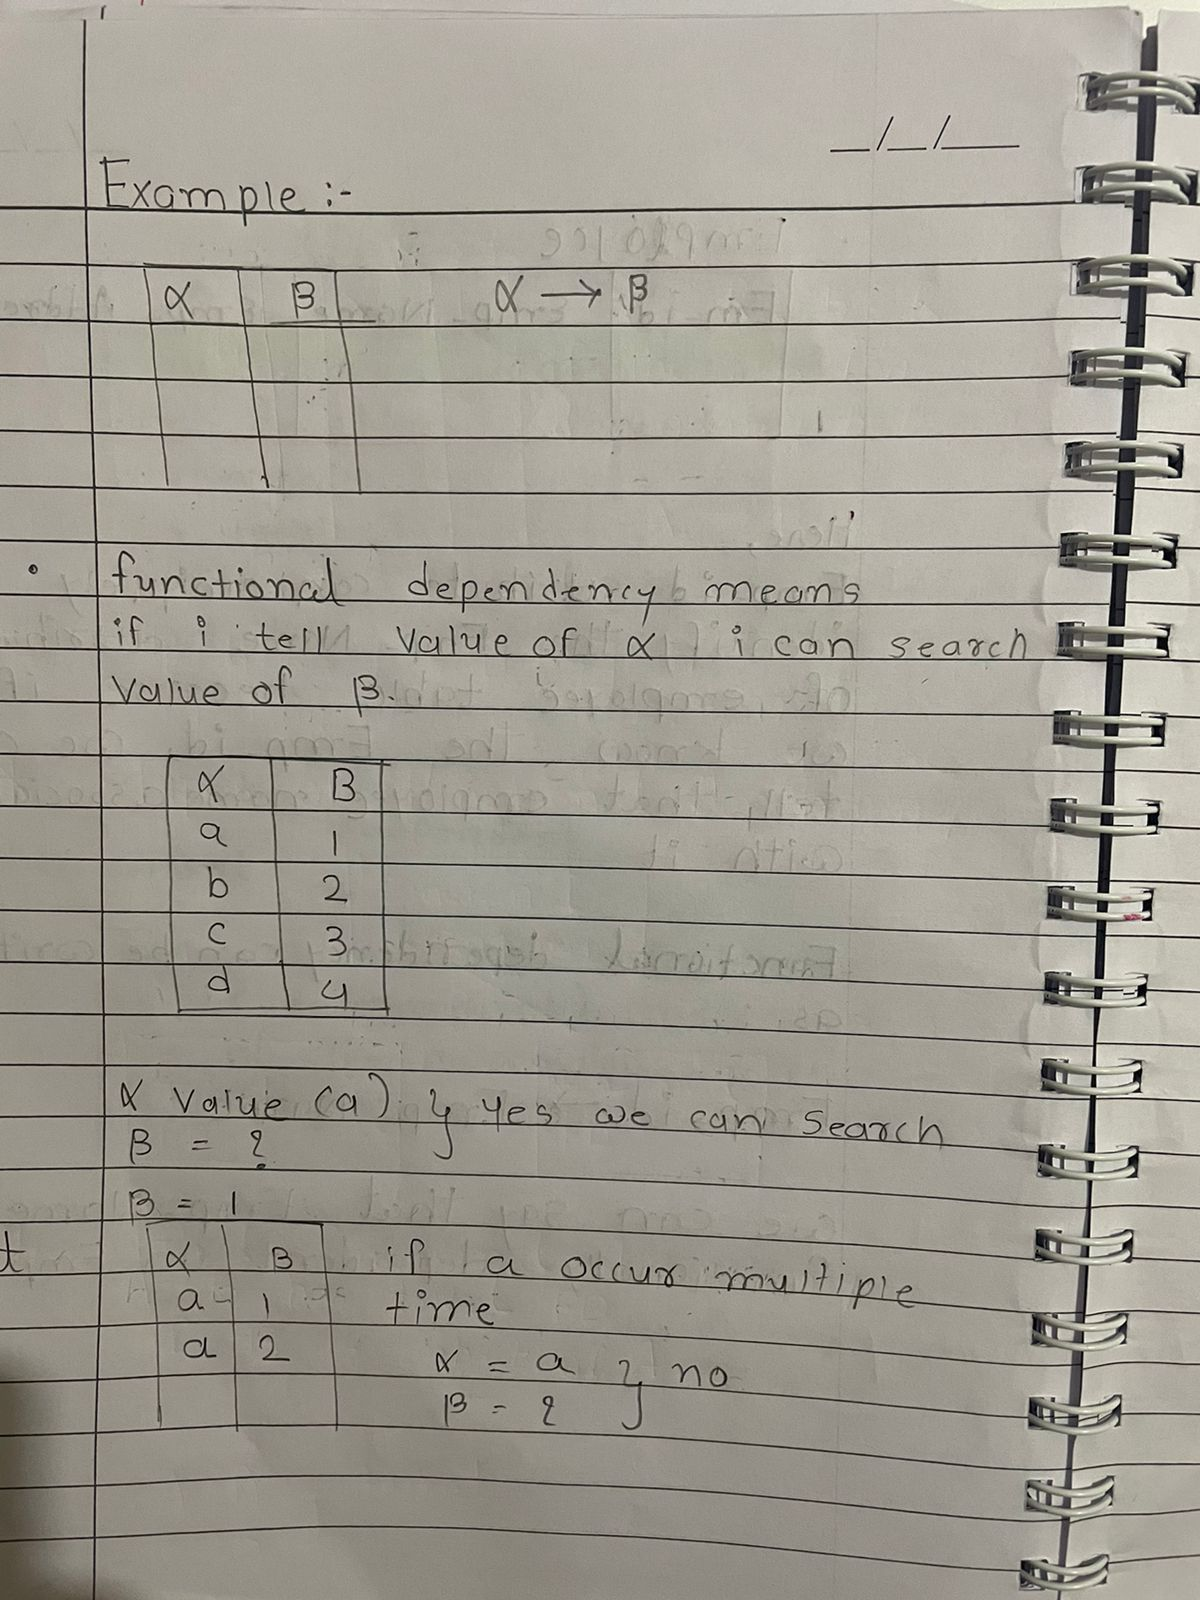 _/_/_
Example :-
α β α → β
functional dependency means
if i tell value of α i can search
value of β.
α B
a 1
b 2
c 3
d 4
α value (a) } yes we can search
β = ?
β = 1
t α B if a occur multiple
a 1 time
a 2 α = a } no
β = ?